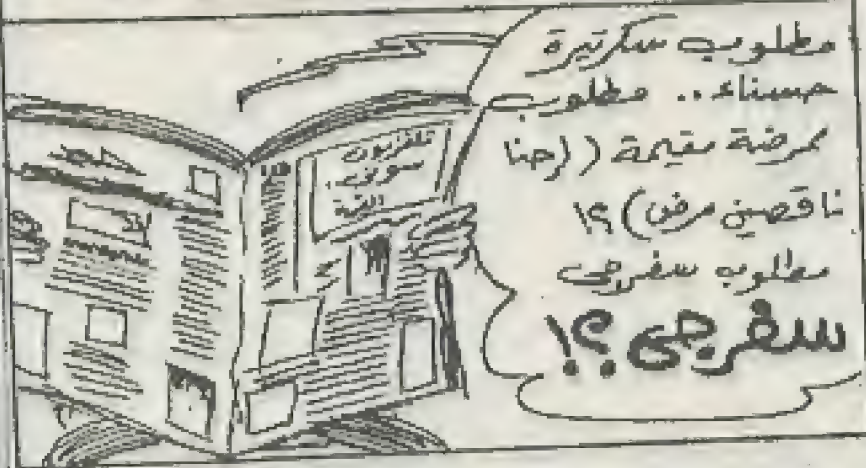 مطلوب سكرتيرة
حسناء.. مطلوب
ممرضة مقيمة ((حنا
ناقصين مرض)؟!
مطلوب سفرجى
سفرجى؟!
تلفزيون
سونى